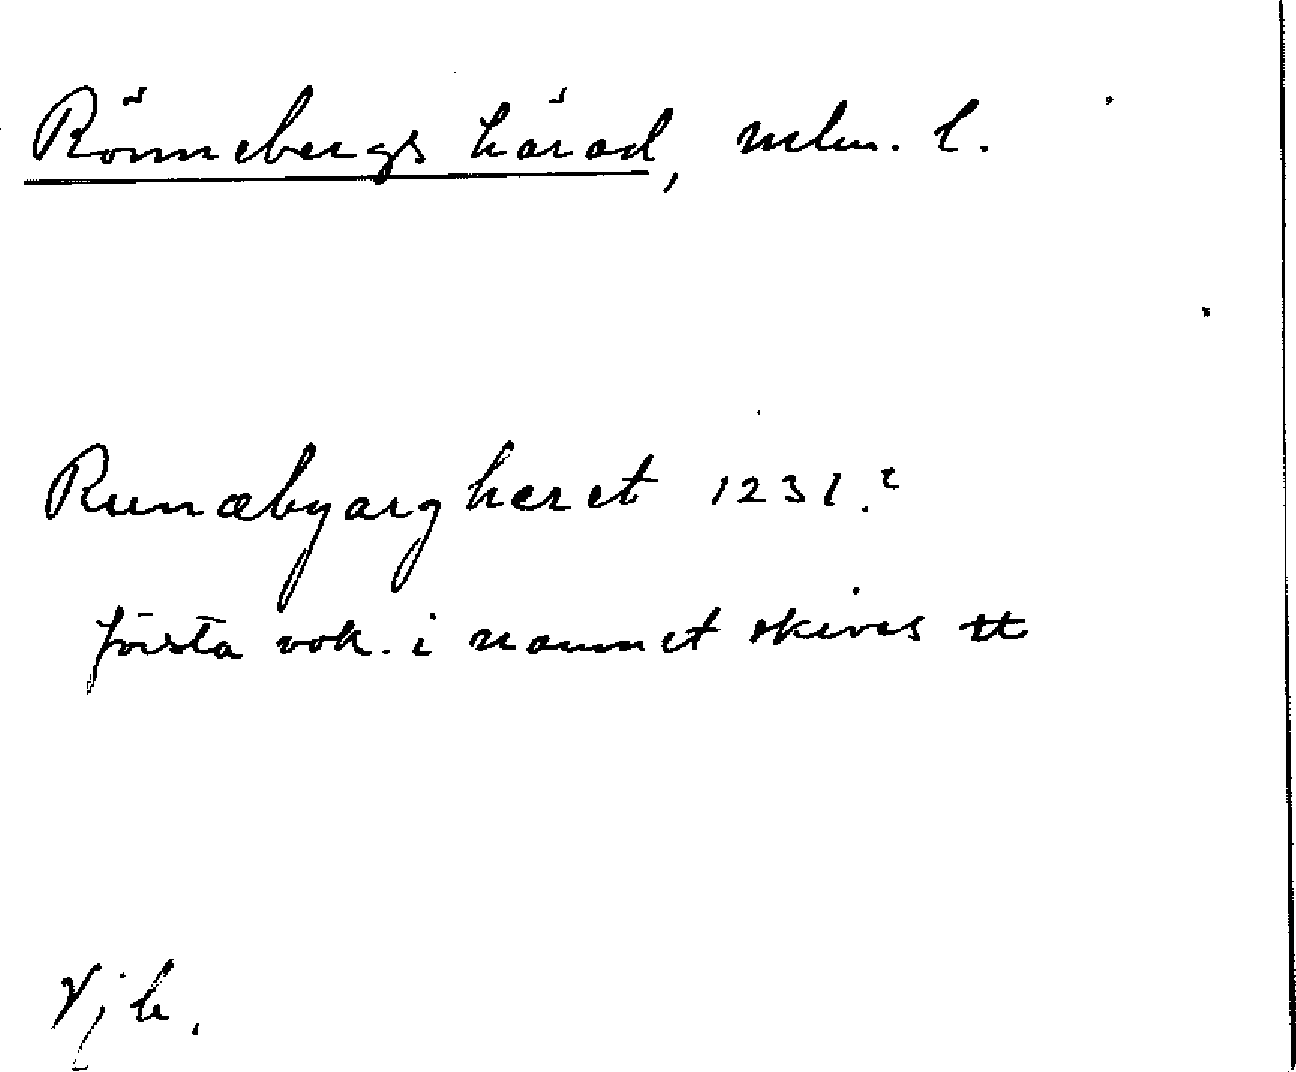 Rönnebergs härad, mlm. l.
Runæbyargheret 1231.2
första vok. i namnet skives u
Vjb.